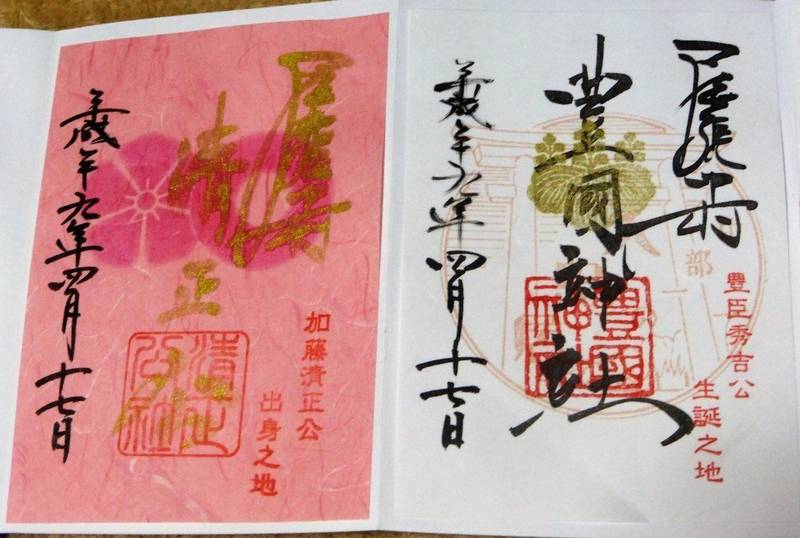 尾張中村
豊國神社
豊國神社
部
豊臣秀吉公
生誕之地
平成廿九年四月十七日
清正公社
清正公社
加藤清正公
出身之地
平成廿九年四月十七日